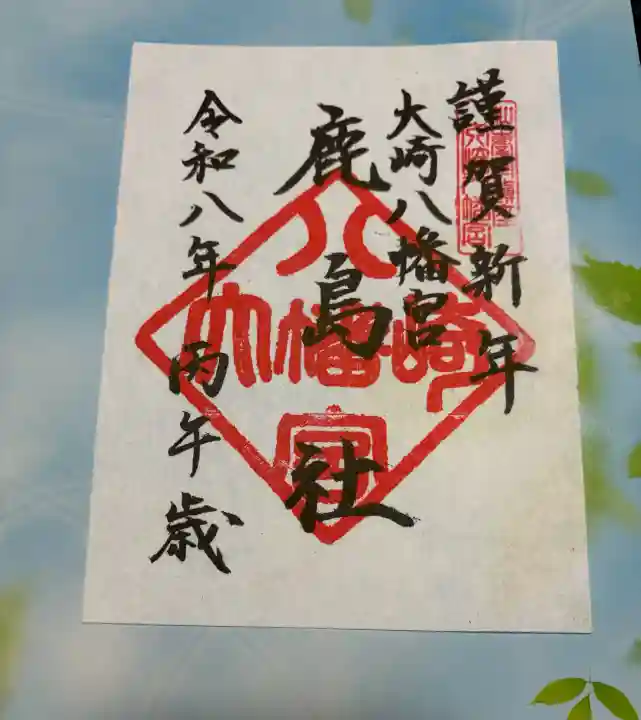 謹賀新年
大崎八幡宮
鹿島社
令和八年 丙午歳
大崎八幡宮